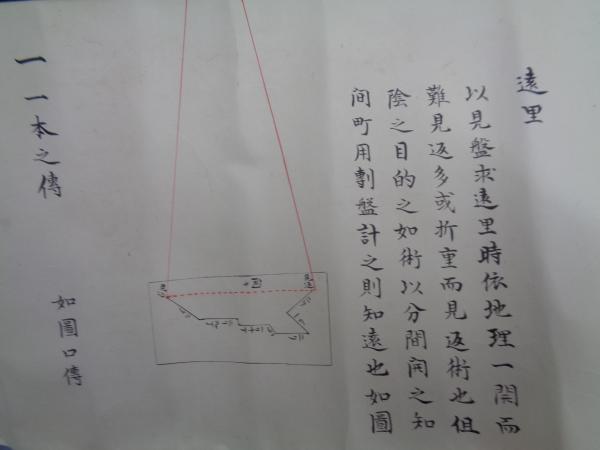 遠里
以見盤求遠里時依地理一開而
難見返多或折重而見返術也但
陰之目的之如術以分間開之知
间町用割盤計之則知遠也如圖
一一本之傳
如圖口傳